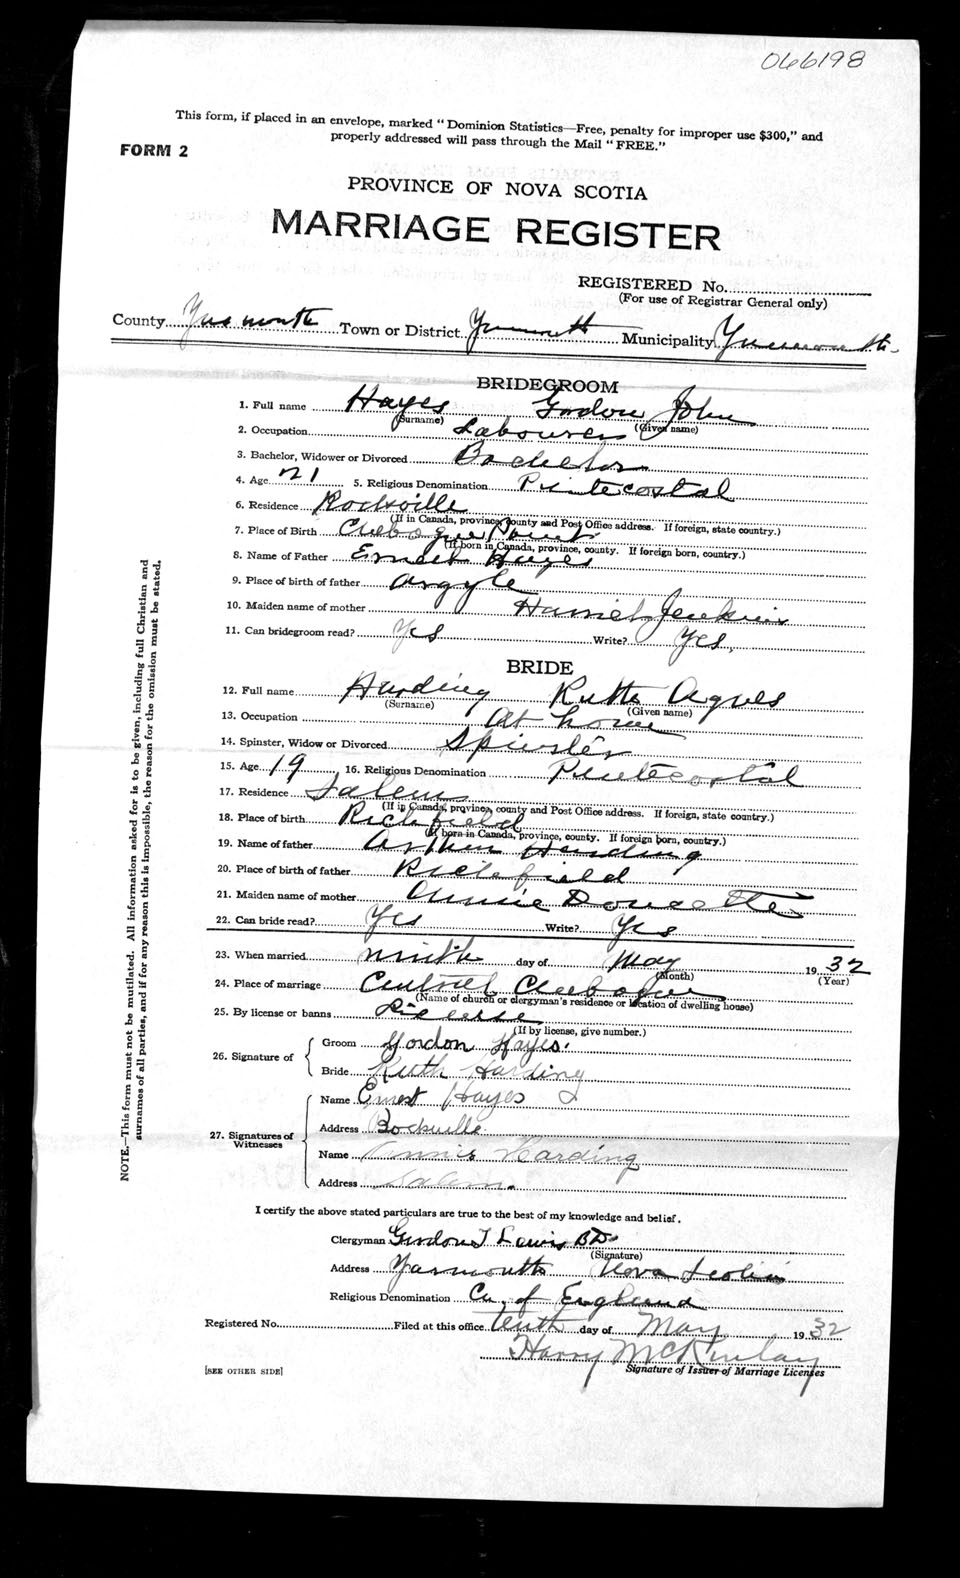 066198
This form, if placed in an envelope, marked "Dominion Statistics—Free, penalty for improper use $300," and
properly addressed will pass through the Mail "FREE."
FORM 2
PROVINCE OF NOVA SCOTIA
MARRIAGE REGISTER
REGISTERED No.
(For use of Registrar General only)
County Yarmouth Town or District Yarmouth Municipality Yarmouth
BRIDEGROOM
1. Full name Hayes Gordon John
(Surname) (Given name)
2. Occupation Labourer
3. Bachelor, Widower or Divorced Bachelor
4. Age 21 5. Religious Denomination Pentecostal
6. Residence Rockville
(If in Canada, province, county and Post Office address. If foreign, state country.)
7. Place of Birth Chebogue Point
(If born in Canada, province, county. If foreign born, country.)
8. Name of Father Ernest Hayes
9. Place of birth of father Argyle
10. Maiden name of mother Harriet Jenkins
11. Can bridegroom read? Yes Write? Yes,
BRIDE
12. Full name Harding Ruth Agnes
(Surname) (Given name)
13. Occupation At home
14. Spinster, Widow or Divorced Spinster
15. Age 19 16. Religious Denomination Pentecostal
17. Residence Salem
(If in Canada, province, county and Post Office address. If foreign, state country.)
18. Place of birth Richfield
(If born in Canada, province, county. If foreign born, country.)
19. Name of father Arthur Harding
20. Place of birth of father Richfield
21. Maiden name of mother Annie Doucette
22. Can bride read? Yes Write? Yes
23. When married ninth day of May 1932
(Month) (Year)
24. Place of marriage Central Chebogue
(Name of church or clergyman's residence or location of dwelling house)
25. By license or banns License
(If by license, give number.)
26. Signature of
Groom Gordon Hayes.
Bride Ruth Harding
27. Signatures of Witnesses
Name Ernest Hayes
Address Rockville
Name Annie Harding
Address Salem.
I certify the above stated particulars are true to the best of my knowledge and belief.
Clergyman Gordon T Lewis BD
(Signature)
Address Yarmouth Nova Scotia
Religious Denomination Ch. of England
Registered No. Filed at this office tenth day of May 1932
Harry McKinlay
Signature of Issuer of Marriage Licenses
[SEE OTHER SIDE]
NOTE.—This form must not be mutilated. All information asked for is to be given, including full Christian and
surnames of all parties, and if for any reason this is impossible, the reason for the omission must be stated.